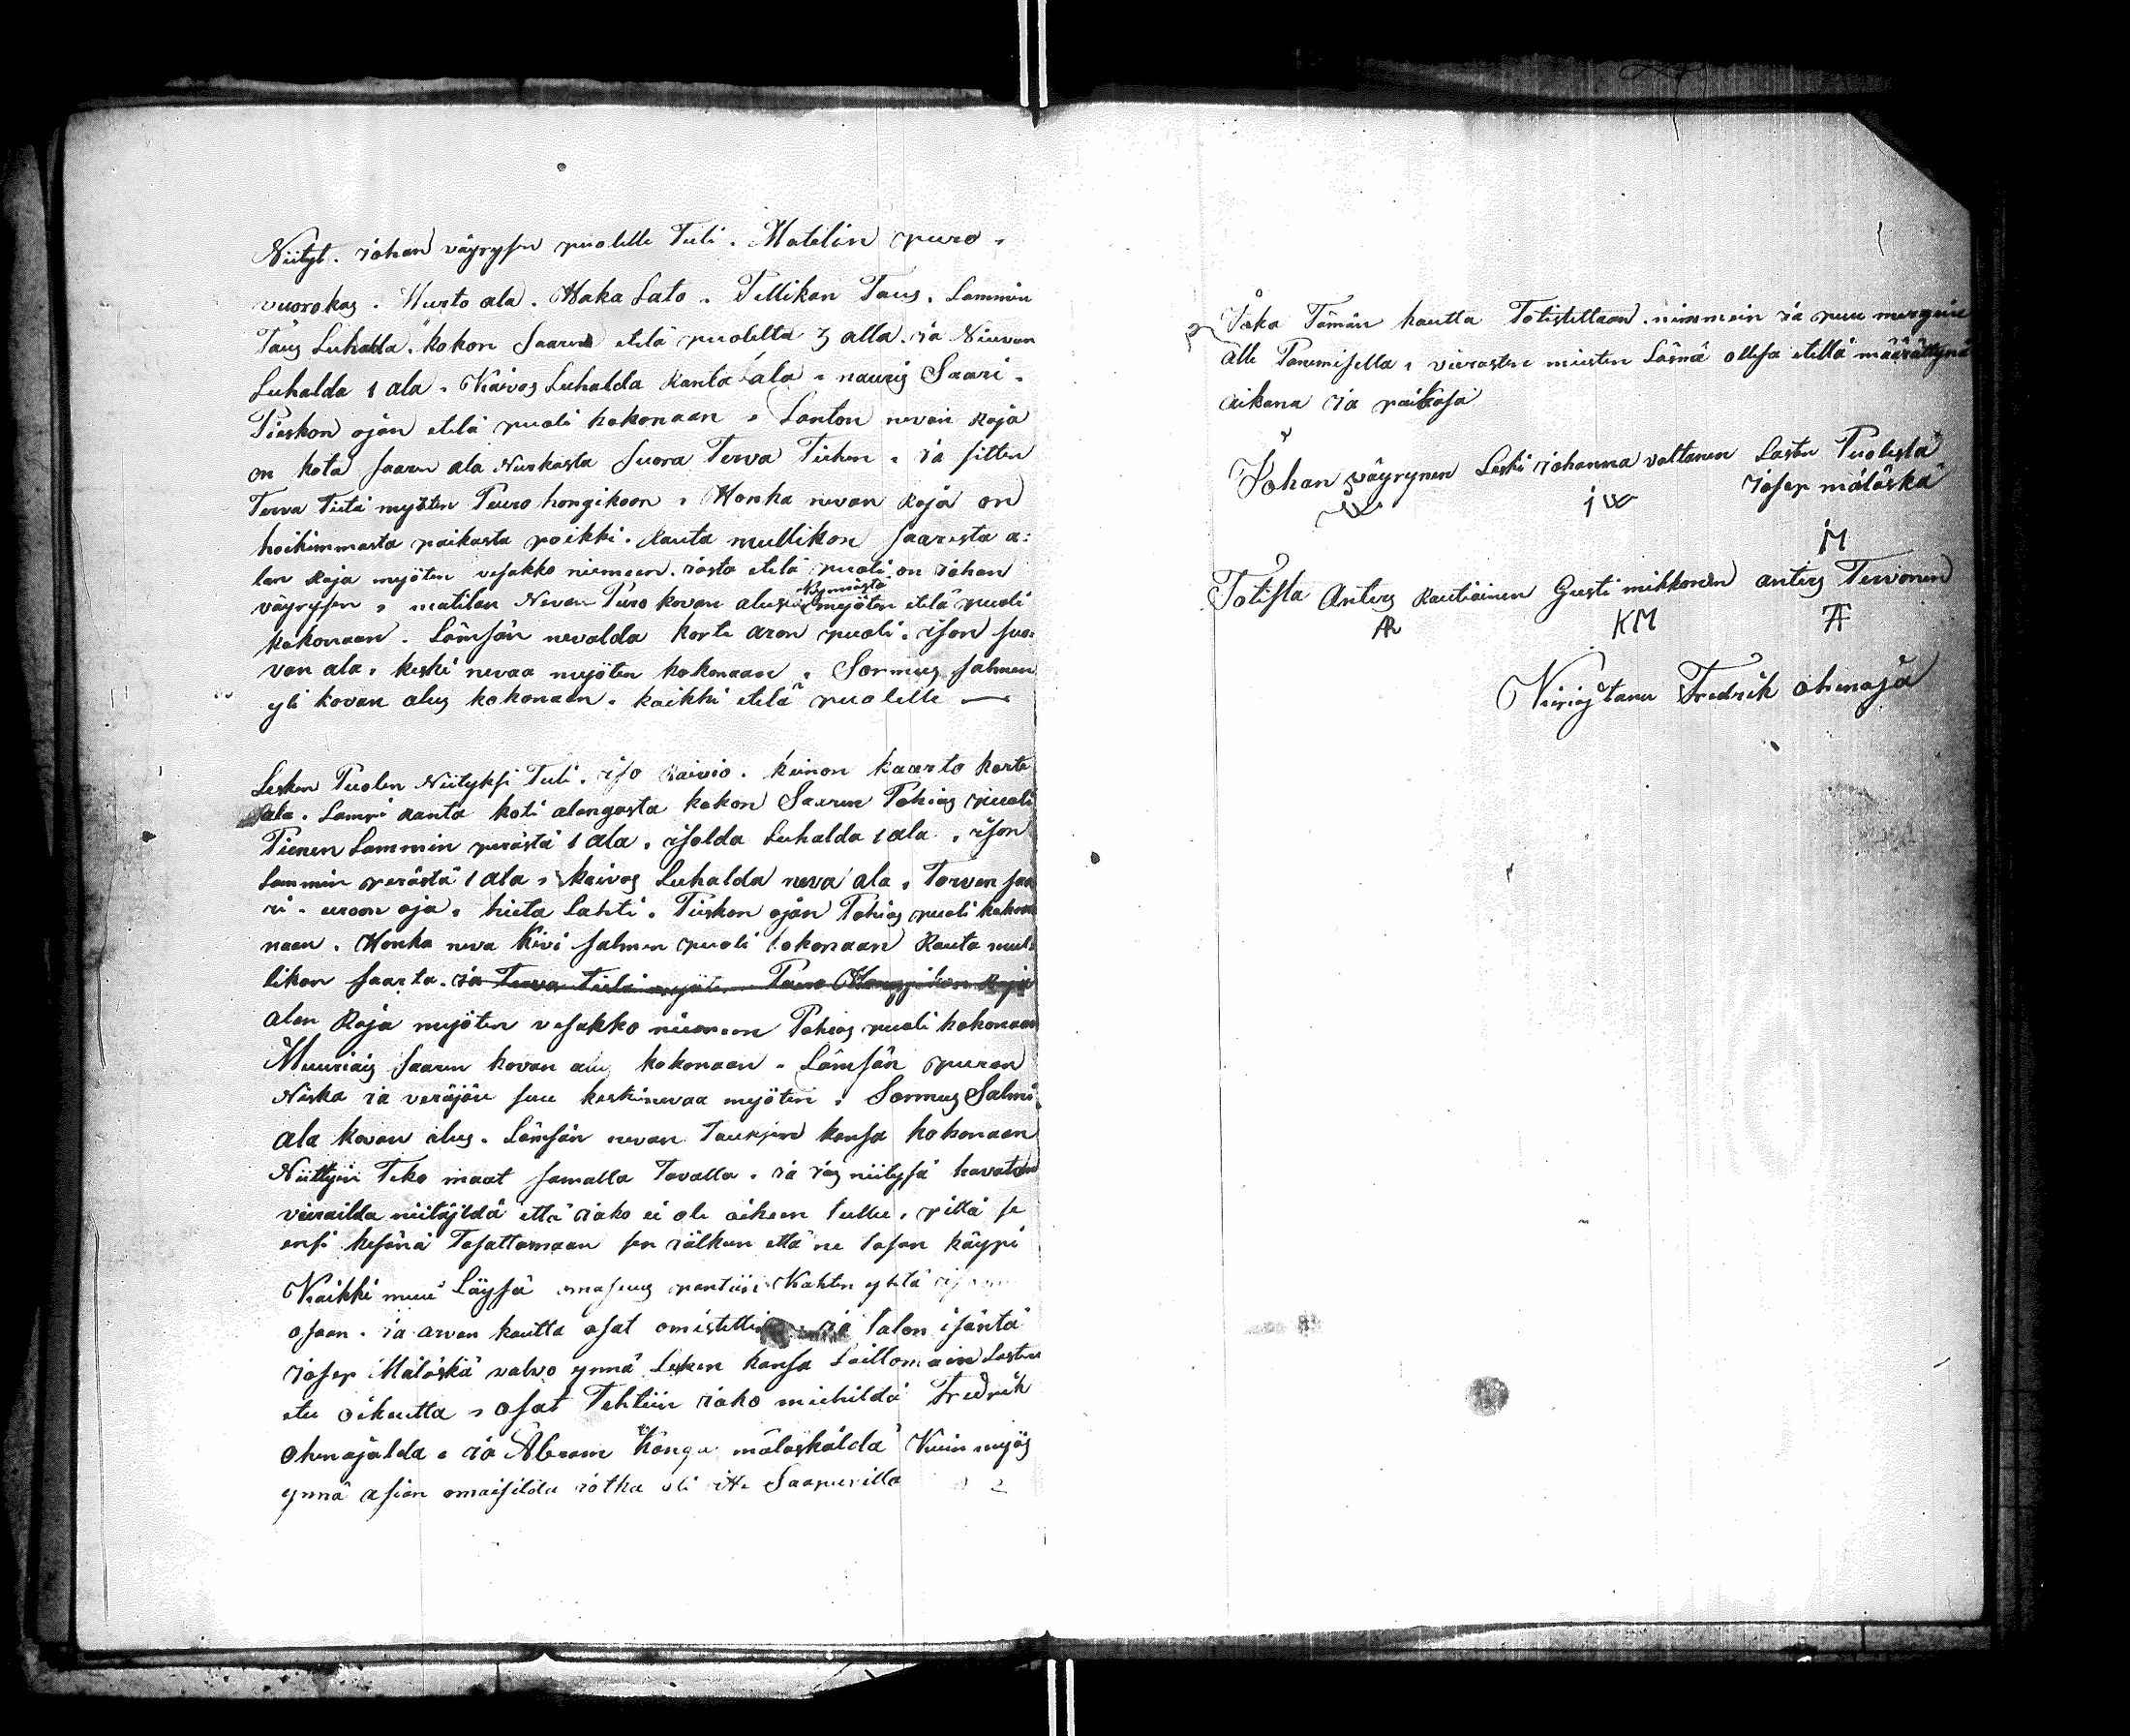 Niityt. johan väyrysen puolelle Tuli. Matelin puro.
vuorokas. Murto ala. Haka Lato. Tellikan Taus. Lammin
Taus Luhalla. kokon Saaren etelä puolelta 3 alla. ja
Luhalda 1 ala. Kaivos Luhalda Ranta ala. nauris Saari.
Pieskon ojan etelä puoli kokonaan. Lanton nevan Raja
on kota saaren ala Nurkasta suora Terva Tiehen. ja sitten
Terva Tietä myöten Puro hongikoon. Honka nevan Raja on
hoikimmasta paikasta poikki. Rauta mullikon saaresta a:
lan Raja myöten vesakko niemeen. josta etelä puoli on johan
väyrysen. matilan Nevan Puro kovan myöten etelä puoli
kokonaan. Lämsän nevalda korte aron puoli. ison suo:
van ala. keski nevaa myöten kokonaan. Sormus salmen
yli kovan alus kokonaan. kaikki etelä puolelle —
Lesken Puolen Niityksi Tuli. iso Raivio. keinon kaarto korte
ala. Lampi Ranta koti alangasta kokon Saaren Pohjas puoli
Pienen Lammin perästä 1 ala. isolda Luhalda 1 ala. ison
Lammin perästä 1 ala. kaivos Luhalda neva ala. Torven saa
ri. uroon oja. hieta Lahti. Pieskon ojan Pohjas puoli koko
naan. Honka neva Kivi salmen puoli kokonaan Rauta mul:
likon saarta. ja Terva tietä myöten Puro Hongikon Raja
alan Raja myöten vesakko niemeen Pohjas puoli kokonaan
Muuriais saaren kovan alus kokonaan. Lämsän puron
Niska ja veräjän suu keskinevaa myöten. Sormus Salmi
ala kovan alus. Lämsän nevan kansa kokonaan
Niittyin Teko maat samalla Tavalla. ja jos niityssä havatan
vierailda niitäjildä että jako ei ole oikeen tullu. pittä se
ensi kesänä Tasattamaan sen jälkeen että ne tasan käypi
Kaikki muu Läysä omasuus pantiin Kahten yhtä
osaan. ja arvan kautta osat omistettin ja talon isäntä
josep Mäläskä valvo ynnä Lesken kansa Laillomain Lasten
etu oikeutta. osat Tehtiin jako miehildä Fredrik
ohenojalda. ja Abram Kongu mäläskäldä Kuin myös
ynnä asian omaisilda jotka oli itte Saapuvilla
Joka Tämän kautta Totistettaan. nimmein ja puu merquin
alle Panemisella. vierasten miesten Läsnä ollesa etellä määrättynä
aikana ja paikasa
Johan väyrynen Leski johanna valtanen Lasten Puolesta
josep mäläskä
JW
M
Totista Anters Rautiainen Gusti mikkonen anters Tervonen
AR KM AT
Kirioitanu Fredrik ohenoja